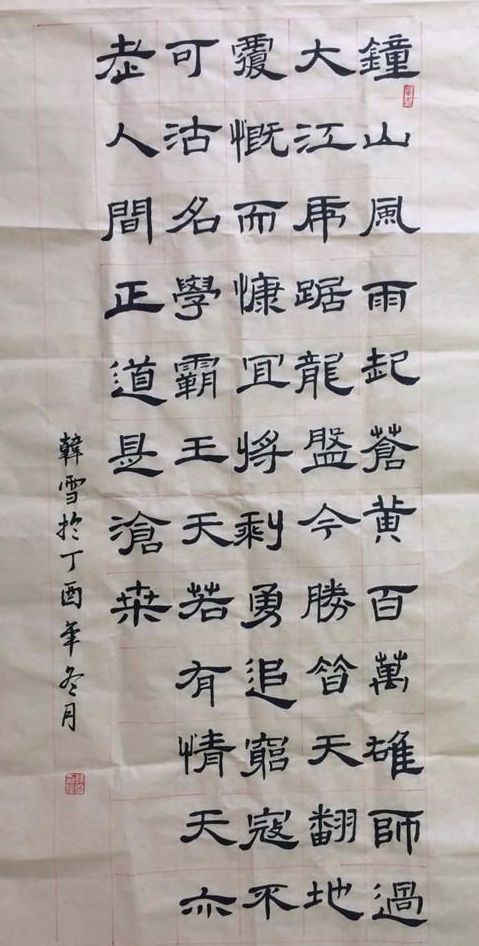 鐘山風雨起蒼黄百萬雄師過
大江虎踞龍盤今勝昔天翻地
覆慨而慷宜將剩勇追窮寇不
可沽名學霸王天若有情天亦
老人間正道是滄桑
韓雪於丁酉年冬月